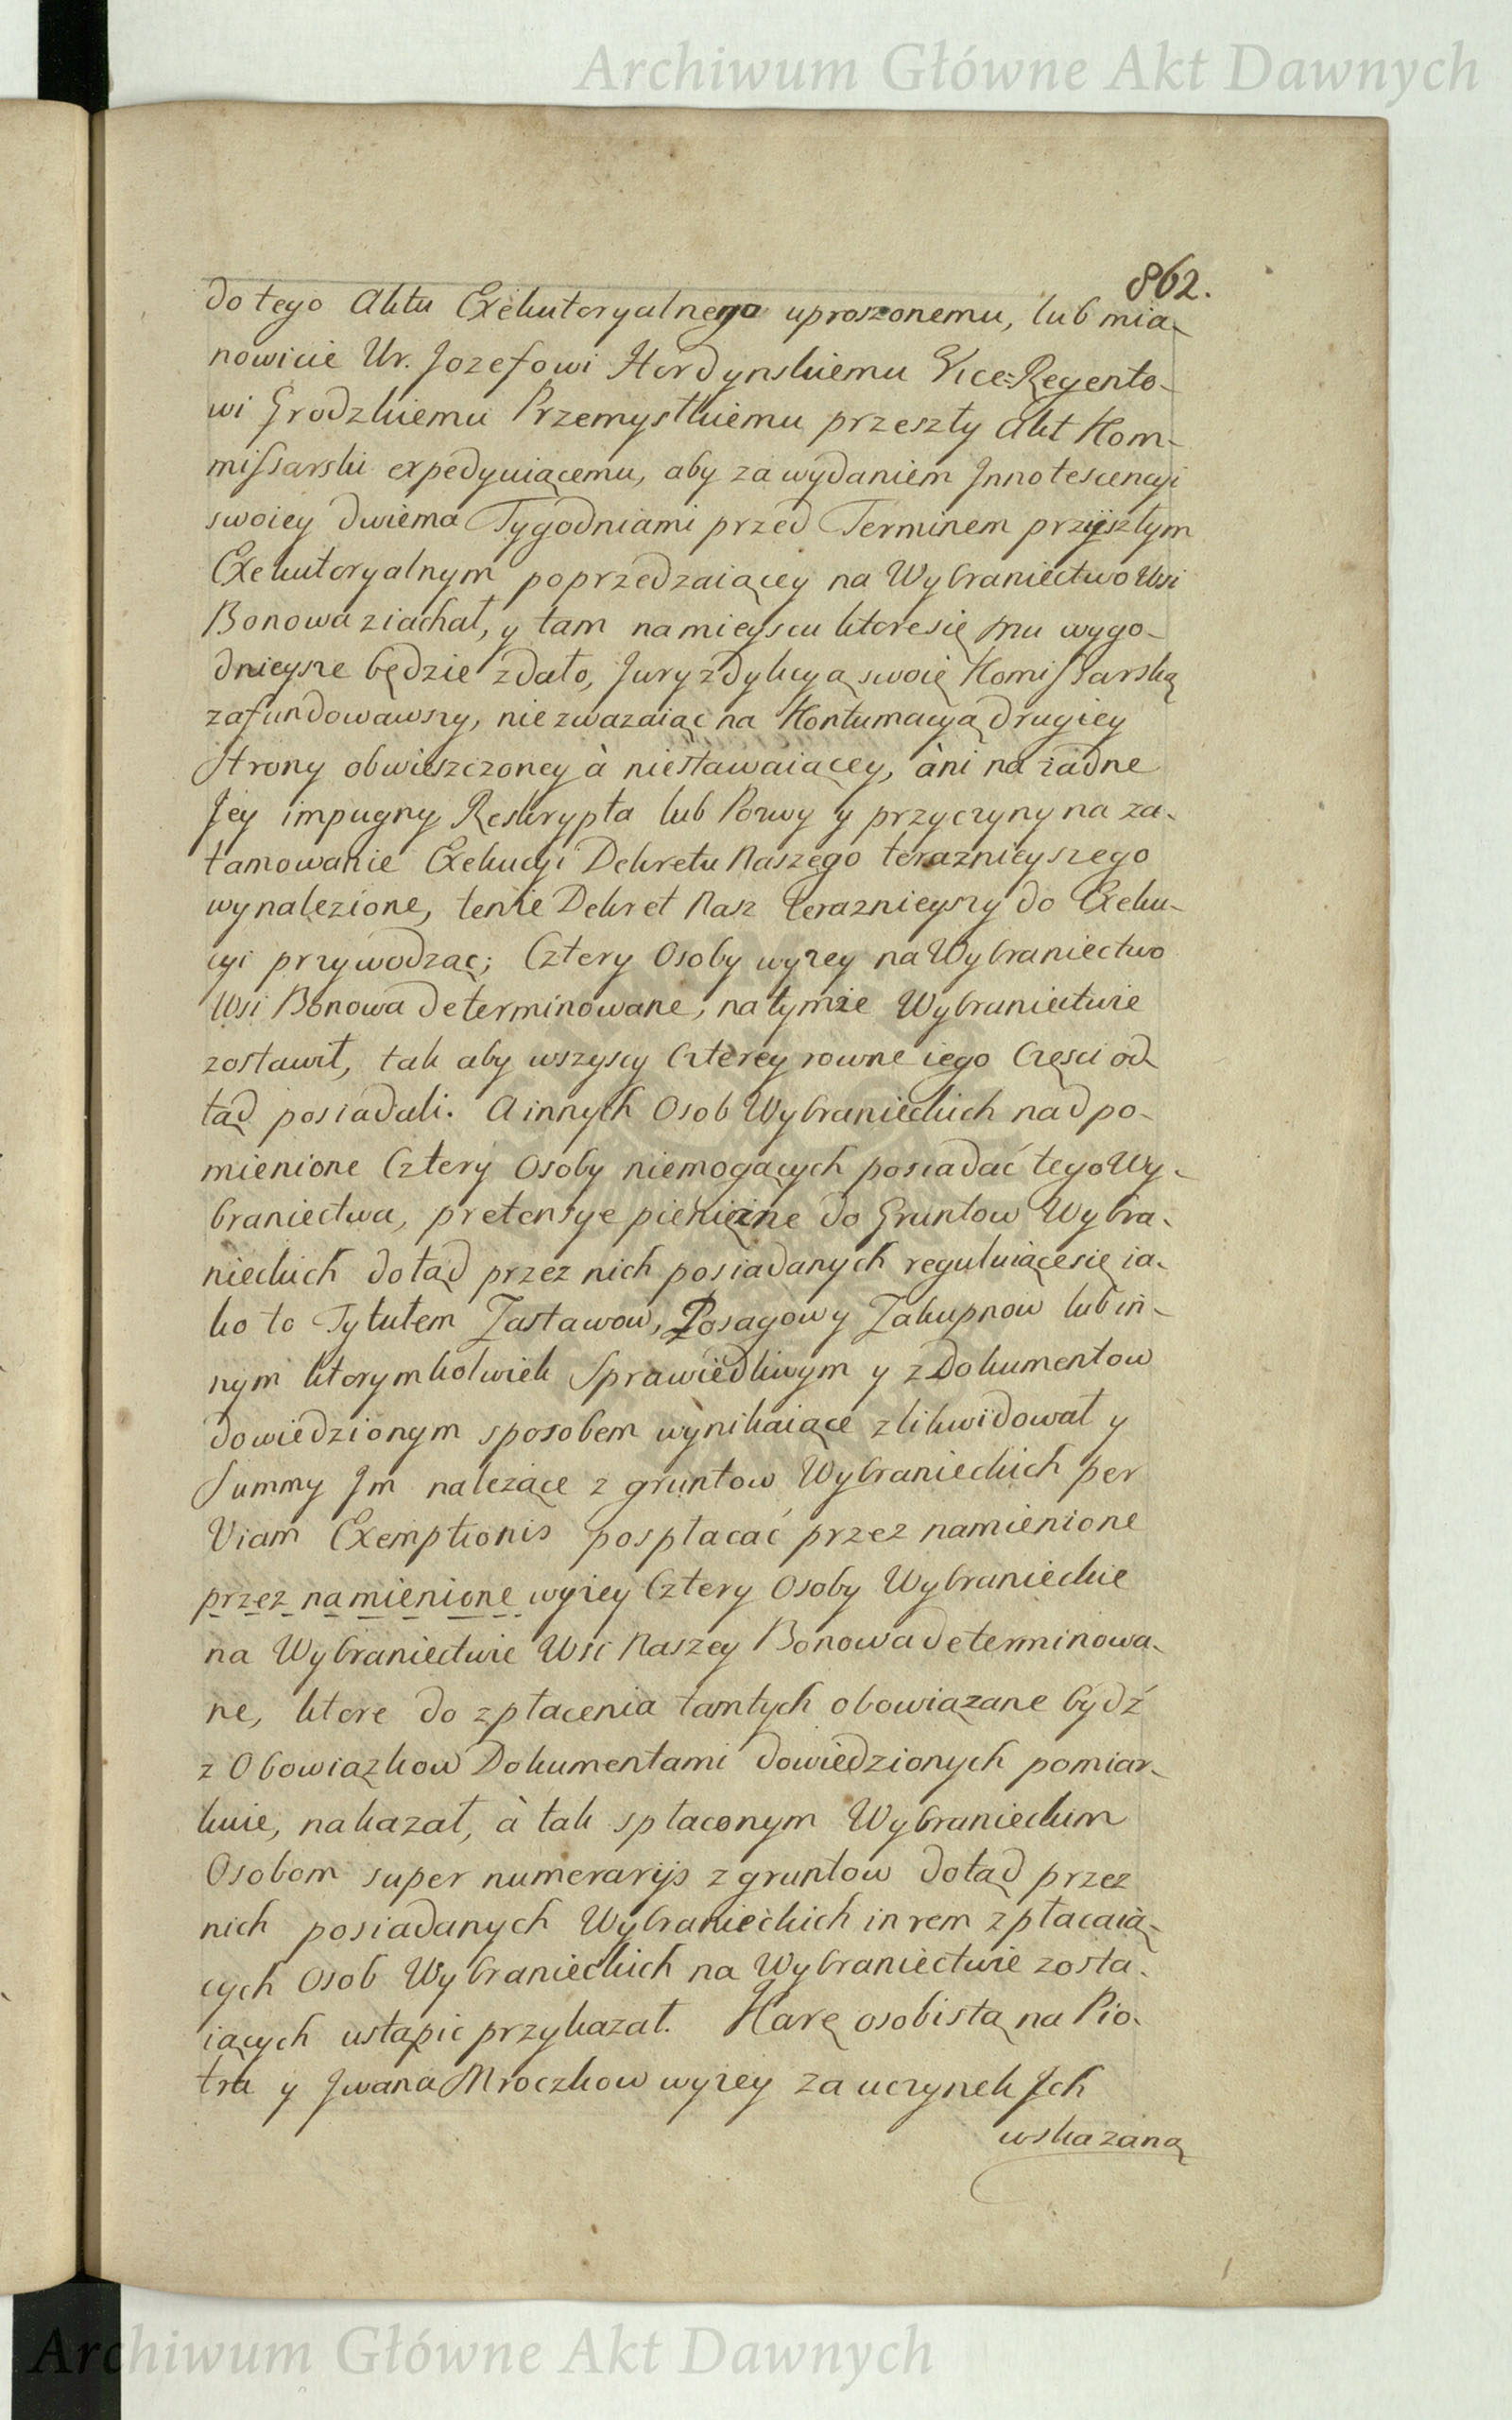 Archiwum Główne Akt Dawnych
862.
do tego Aktu Exekutoryalnego uproszonemu, lub mia-
nowicie Ur. Jozefowi Hordynskiemu Vice-Regento-
wi Grodzkiemu Przemyslkiemu przeszły Akt Kom-
missarski expedyuiącemu, aby za wydaniem Innotescencyi
swoiey dwiema Tygodniami przed Terminem przyiszłym
Exekutoryalnym poprzedzaiącey na Wybraniectwo Wsi
Bonowa ziachał, y tam na mieyscu ktore się mu wygo-
dnieysze będzie zdało, Juryzdykcyą swoię Komissarską
zafundowawszy, nie zwazaiąc na Kontumacyą drugiey
Strony obwieszczoney à niestawaiącey, àni na żadne
Jey impugny Reskrypta lub Pozwy y przyczyny na za-
tamowanie Exekucyi Dekretu Naszego teraznieyszego
wynalezione, tenże Dekret Nasz Teraznieyszy do Exeku-
cyi przywodząc; Cztery Osoby wyżey na Wybraniectwo
Wsi Bonowa determinowane, na tymże Wybraniectwie
zostawił, tak aby wszyscy Czterey rowne iego Części od
tąd posiadali. A innych Osob Wybranieckich nad po-
mienione Cztery Osoby niemogących posiadać tego Wy-
braniectwa, pretensye pieniężne do Gruntow Wybra-
nieckich dotąd przez nich posiadanych reguluiące się ia-
ko to Tytułem Zastawow, Posagow y Zakupnow lub in-
nym ktorymkolwiek Sprawiedliwym y z Dokumentow
dowiedzionym sposobem wynikaiące zlikwidował y
Summy Im należące z gruntow Wybranieckich per
Viam Exemptionis pospłacać przez namienione
przez namienione wyżey Cztery Osoby Wybranieckie
na Wybraniectwie Wsi Naszey Bonowa determinowa-
ne, ktore do zpłacenia tamtych obowiązane bydź
z Obowiązkow Dokumentami dowiedzionych pomiar-
kuie, nakazał, à tak spłaconym Wybranieckim
Osobom super numerarijs z gruntow dotąd przez
nich posiadanych Wybranieckich in rem zpłacaią-
cych Osob Wybranieckich na Wybraniectwie zosta-
iących ustąpic przykazał. Karę osobistą na Pio-
tra y Jwana Mroczkow wyżey za uczynek Jch
wskazaną
Archiwum Główne Akt Dawnych